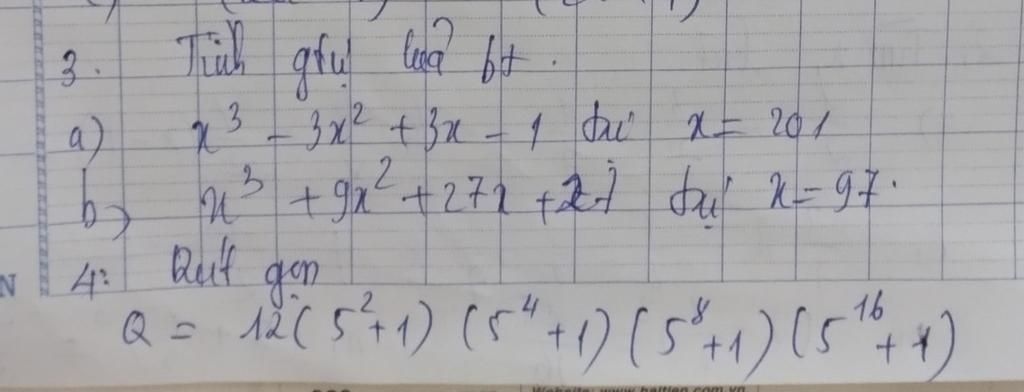 3. Tính gtrị của bt.
a) x³ - 3x² + 3x - 1 tại x = 201
b) x³ + 9x² + 27x + 27 tại x = 97.
4: Rút gọn
Q = 12(5²+1) (5⁴+1) (5⁸+1) (5¹⁶+1)